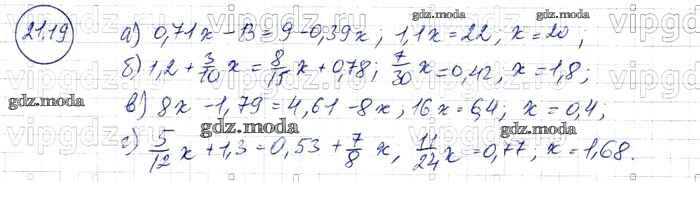 21.19
а) 0,71x - 13 = 9 - 0,39x ; 1,1x = 22 ; x = 20 ;
б) 1,2 + 3/10 x = 8/15 x + 0,78 ; 7/30 x = 0,42, x = 1,8 ;
в) 8x - 1,79 = 4,61 - 8x, 16x = 6,4 ; x = 0,4 ;
г) 5/12 x + 1,3 = 0,53 + 7/8 x, 11/24 x = 0,77 ; x = 1,68.
gdz.moda
gdz.moda
gdz.moda
gdz.moda
gdz.moda
vipgdz.ru
vipgdz.ru
vipgdz.ru
vipgdz.ru